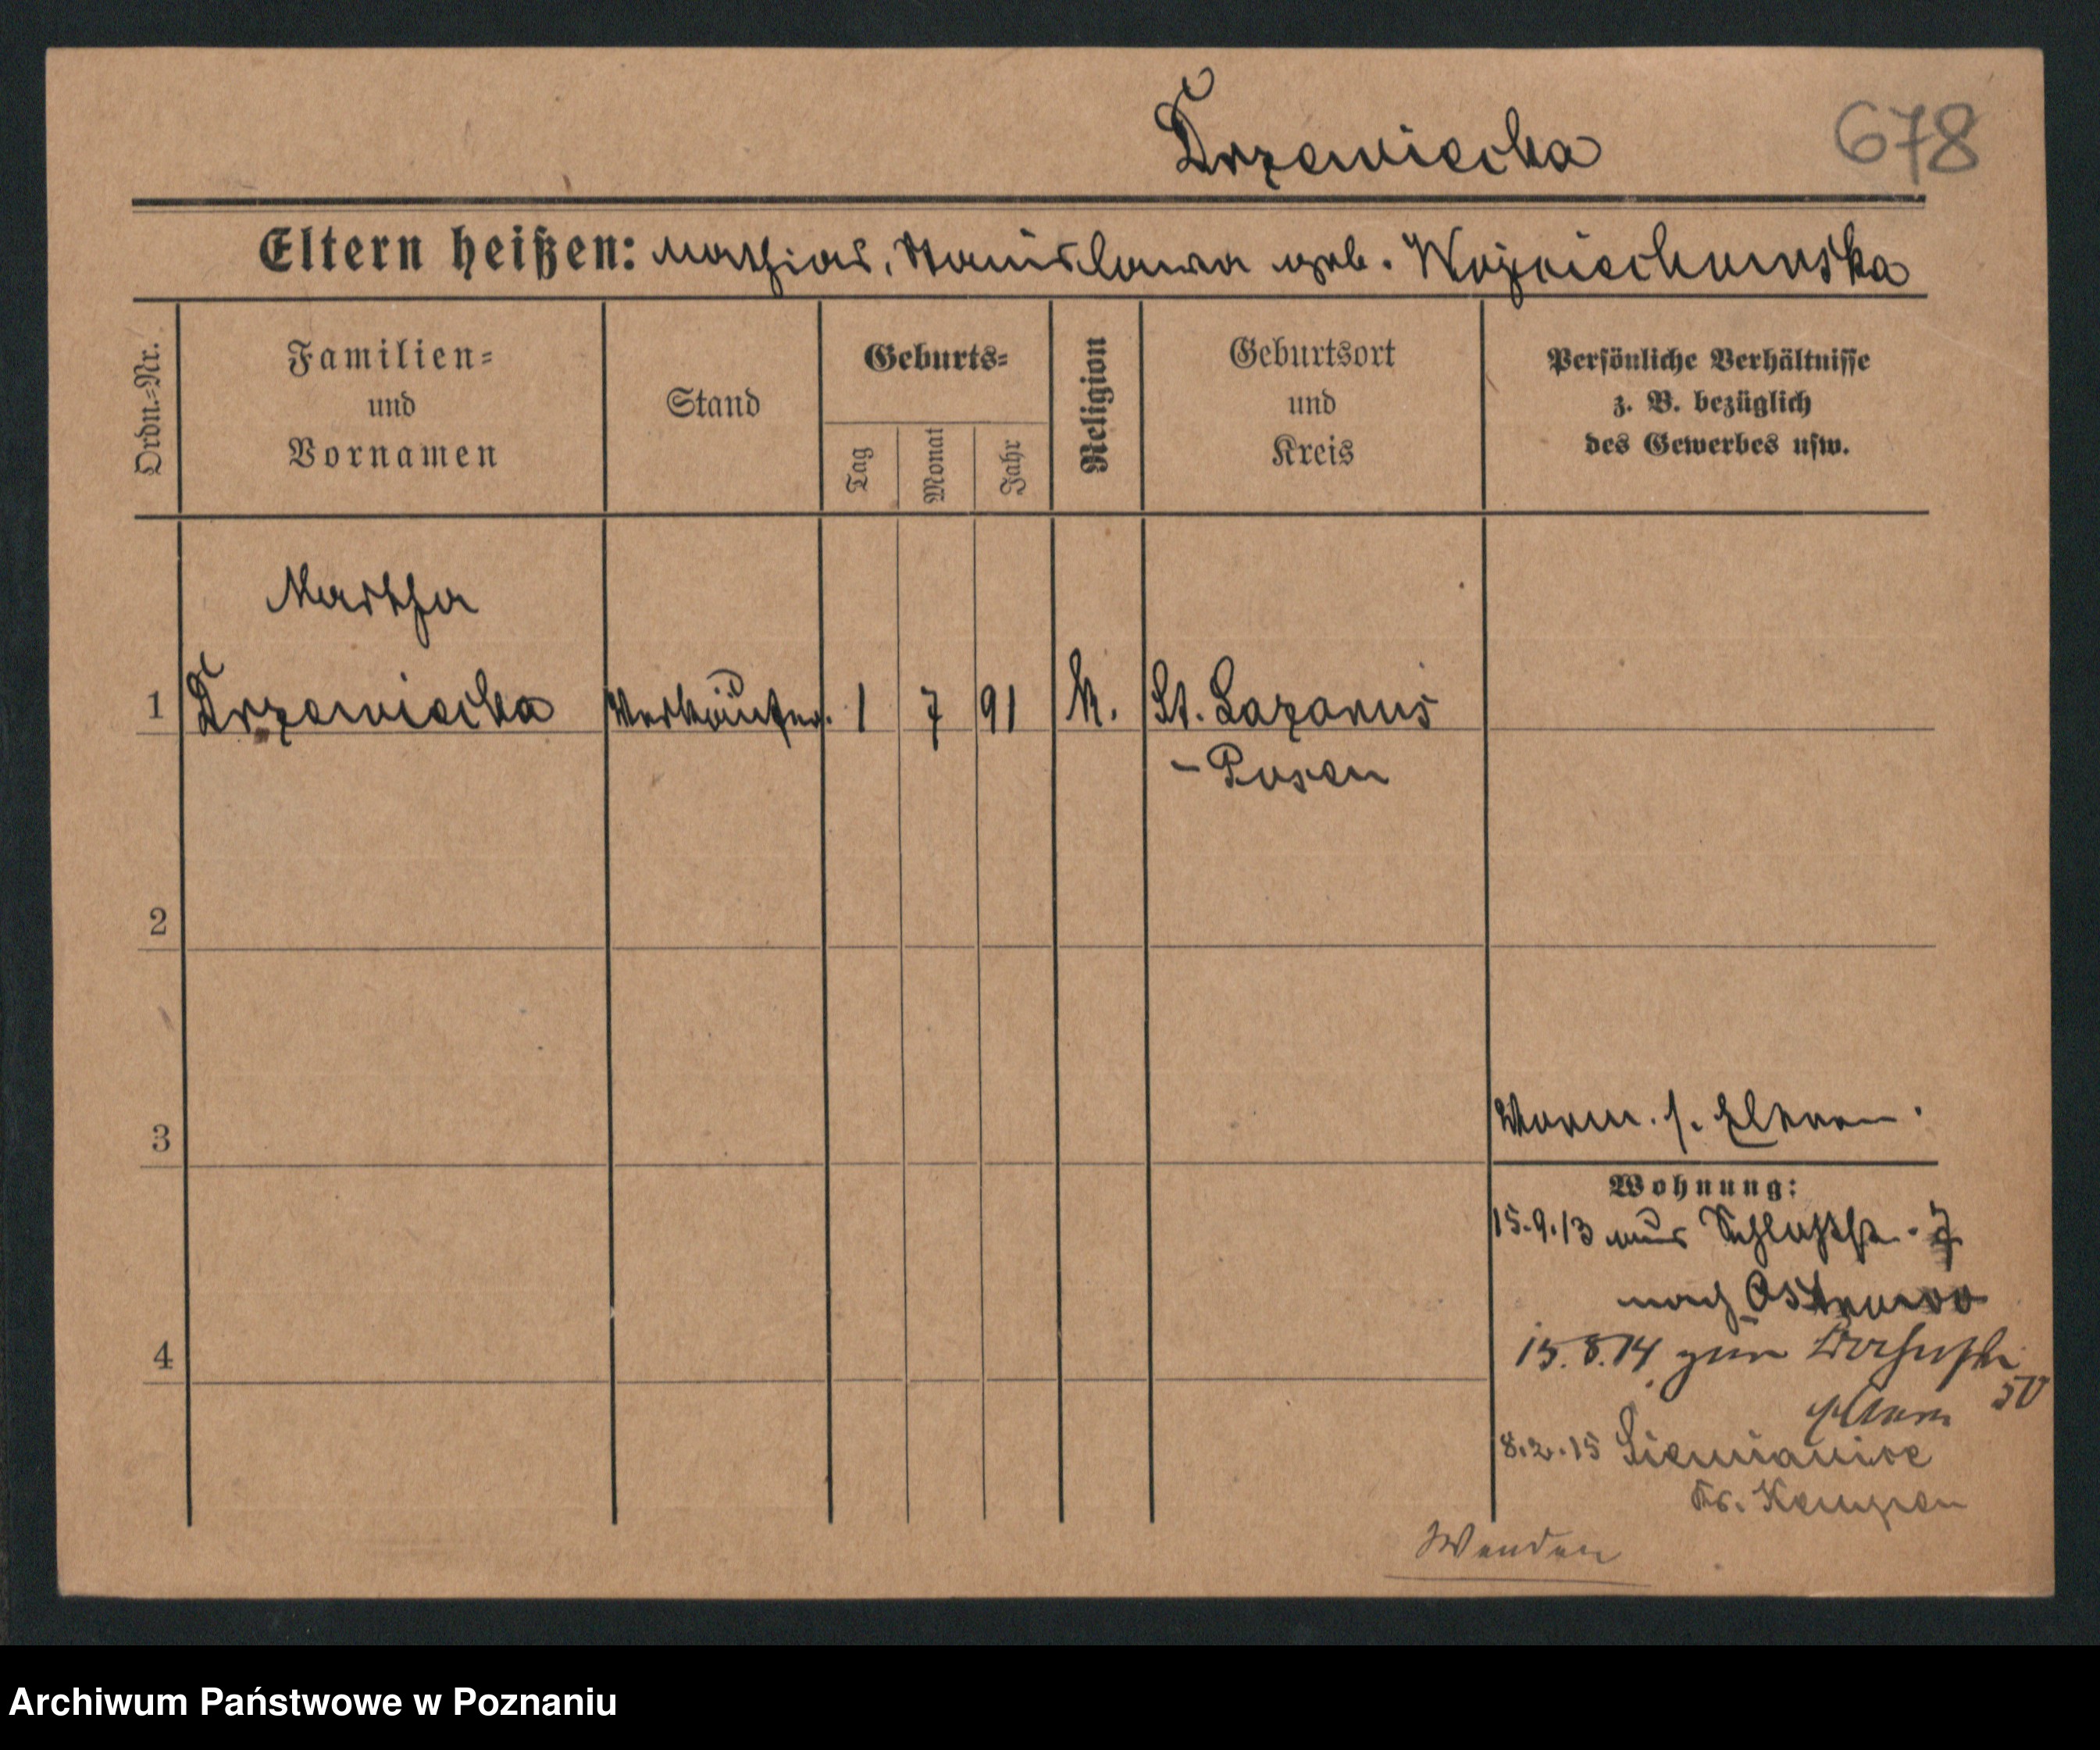 Drzewiecka 678
Eltern heißen: Mathias, Stanislawa geb. Wojciechowska
Ordn.=Nr.
Familien=
und
Vornamen
Stand
Geburts=
Tag
Monat
Jahr
Religion
Geburtsort
und
Kreis
Persönliche Verhältnisse
z. B. bezüglich
des Gewerbes usw.
Martha
1 Drzewiecka Verkäufer. 1 7 91 k. St. Lazarus
- Posen
2
3
Vorm. s. Eltern.
Wohnung:
15.9.13 aus Schloßstr. 7
nach Ostrowo
4
15.8.14 zur
50
Eltern
8.2.15 Siemianice
Kr. Kempen
Wenden
Archiwum Państwowe w Poznaniu